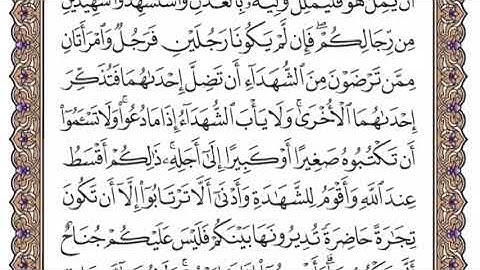 أَن يُمِلَّ هُوَ فَلْيُمْلِلْ وَلِيُّهُۥ بِٱلْعَدْلِ وَٱسْتَشْهِدُوا۟ شَهِيدَيْنِ
مِن رِّجَالِكُمْ ۖ فَإِن لَّمْ يَكُونَا رَجُلَيْنِ فَرَجُلٌ وَٱمْرَأَتَانِ
مِمَّن تَرْضَوْنَ مِنَ ٱلشُّهَدَآءِ أَن تَضِلَّ إِحْدَىٰهُمَا فَتُذَكِّرَ
إِحْدَىٰهُمَا ٱلْأُخْرَىٰ ۚ وَلَا يَأْبَ ٱلشُّهَدَآءُ إِذَا مَا دُعُوا۟ ۚ وَلَا تَسْـَٔمُوٓا۟
أَن تَكْتُبُوهُ صَغِيرًا أَوْ كَبِيرًا إِلَىٰٓ أَجَلِهِۦ ۚ ذَٰلِكُمْ أَقْسَطُ
عِندَ ٱللَّهِ وَأَقْوَمُ لِلشَّهَٰدَةِ وَأَدْنَىٰٓ أَلَّا تَرْتَابُوٓا۟ ۖ إِلَّآ أَن تَكُونَ
تِجَٰرَةً حَاضِرَةً تُدِيرُونَهَا بَيْنَكُمْ فَلَيْسَ عَلَيْكُمْ جُنَاحٌ